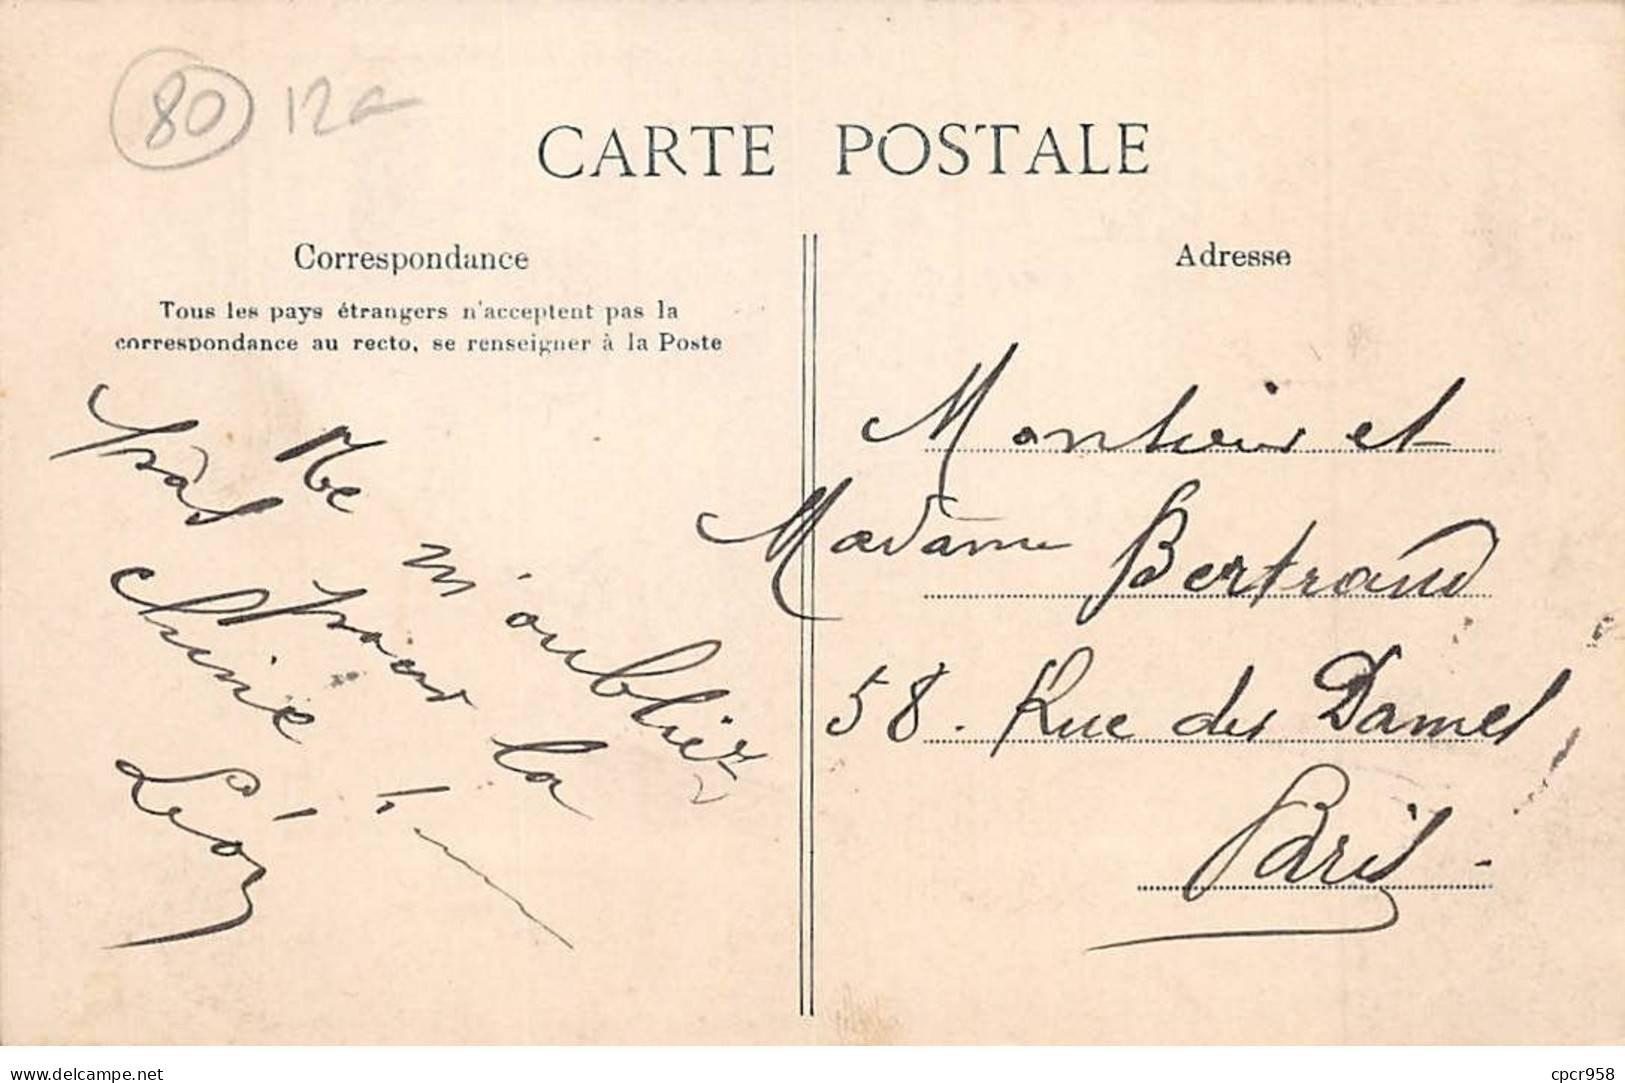 80 12a
CARTE POSTALE
Correspondance
Tous les pays étrangers n'acceptent pas la
correspondance au recto, se renseigner à la Poste
Ne m'oubliez
pas pour la
chine
Léon
Adresse
Monsieur et
Madame Bertrand
58. Rue des Dames
Paris -
www.delcampe.net
cpcr958